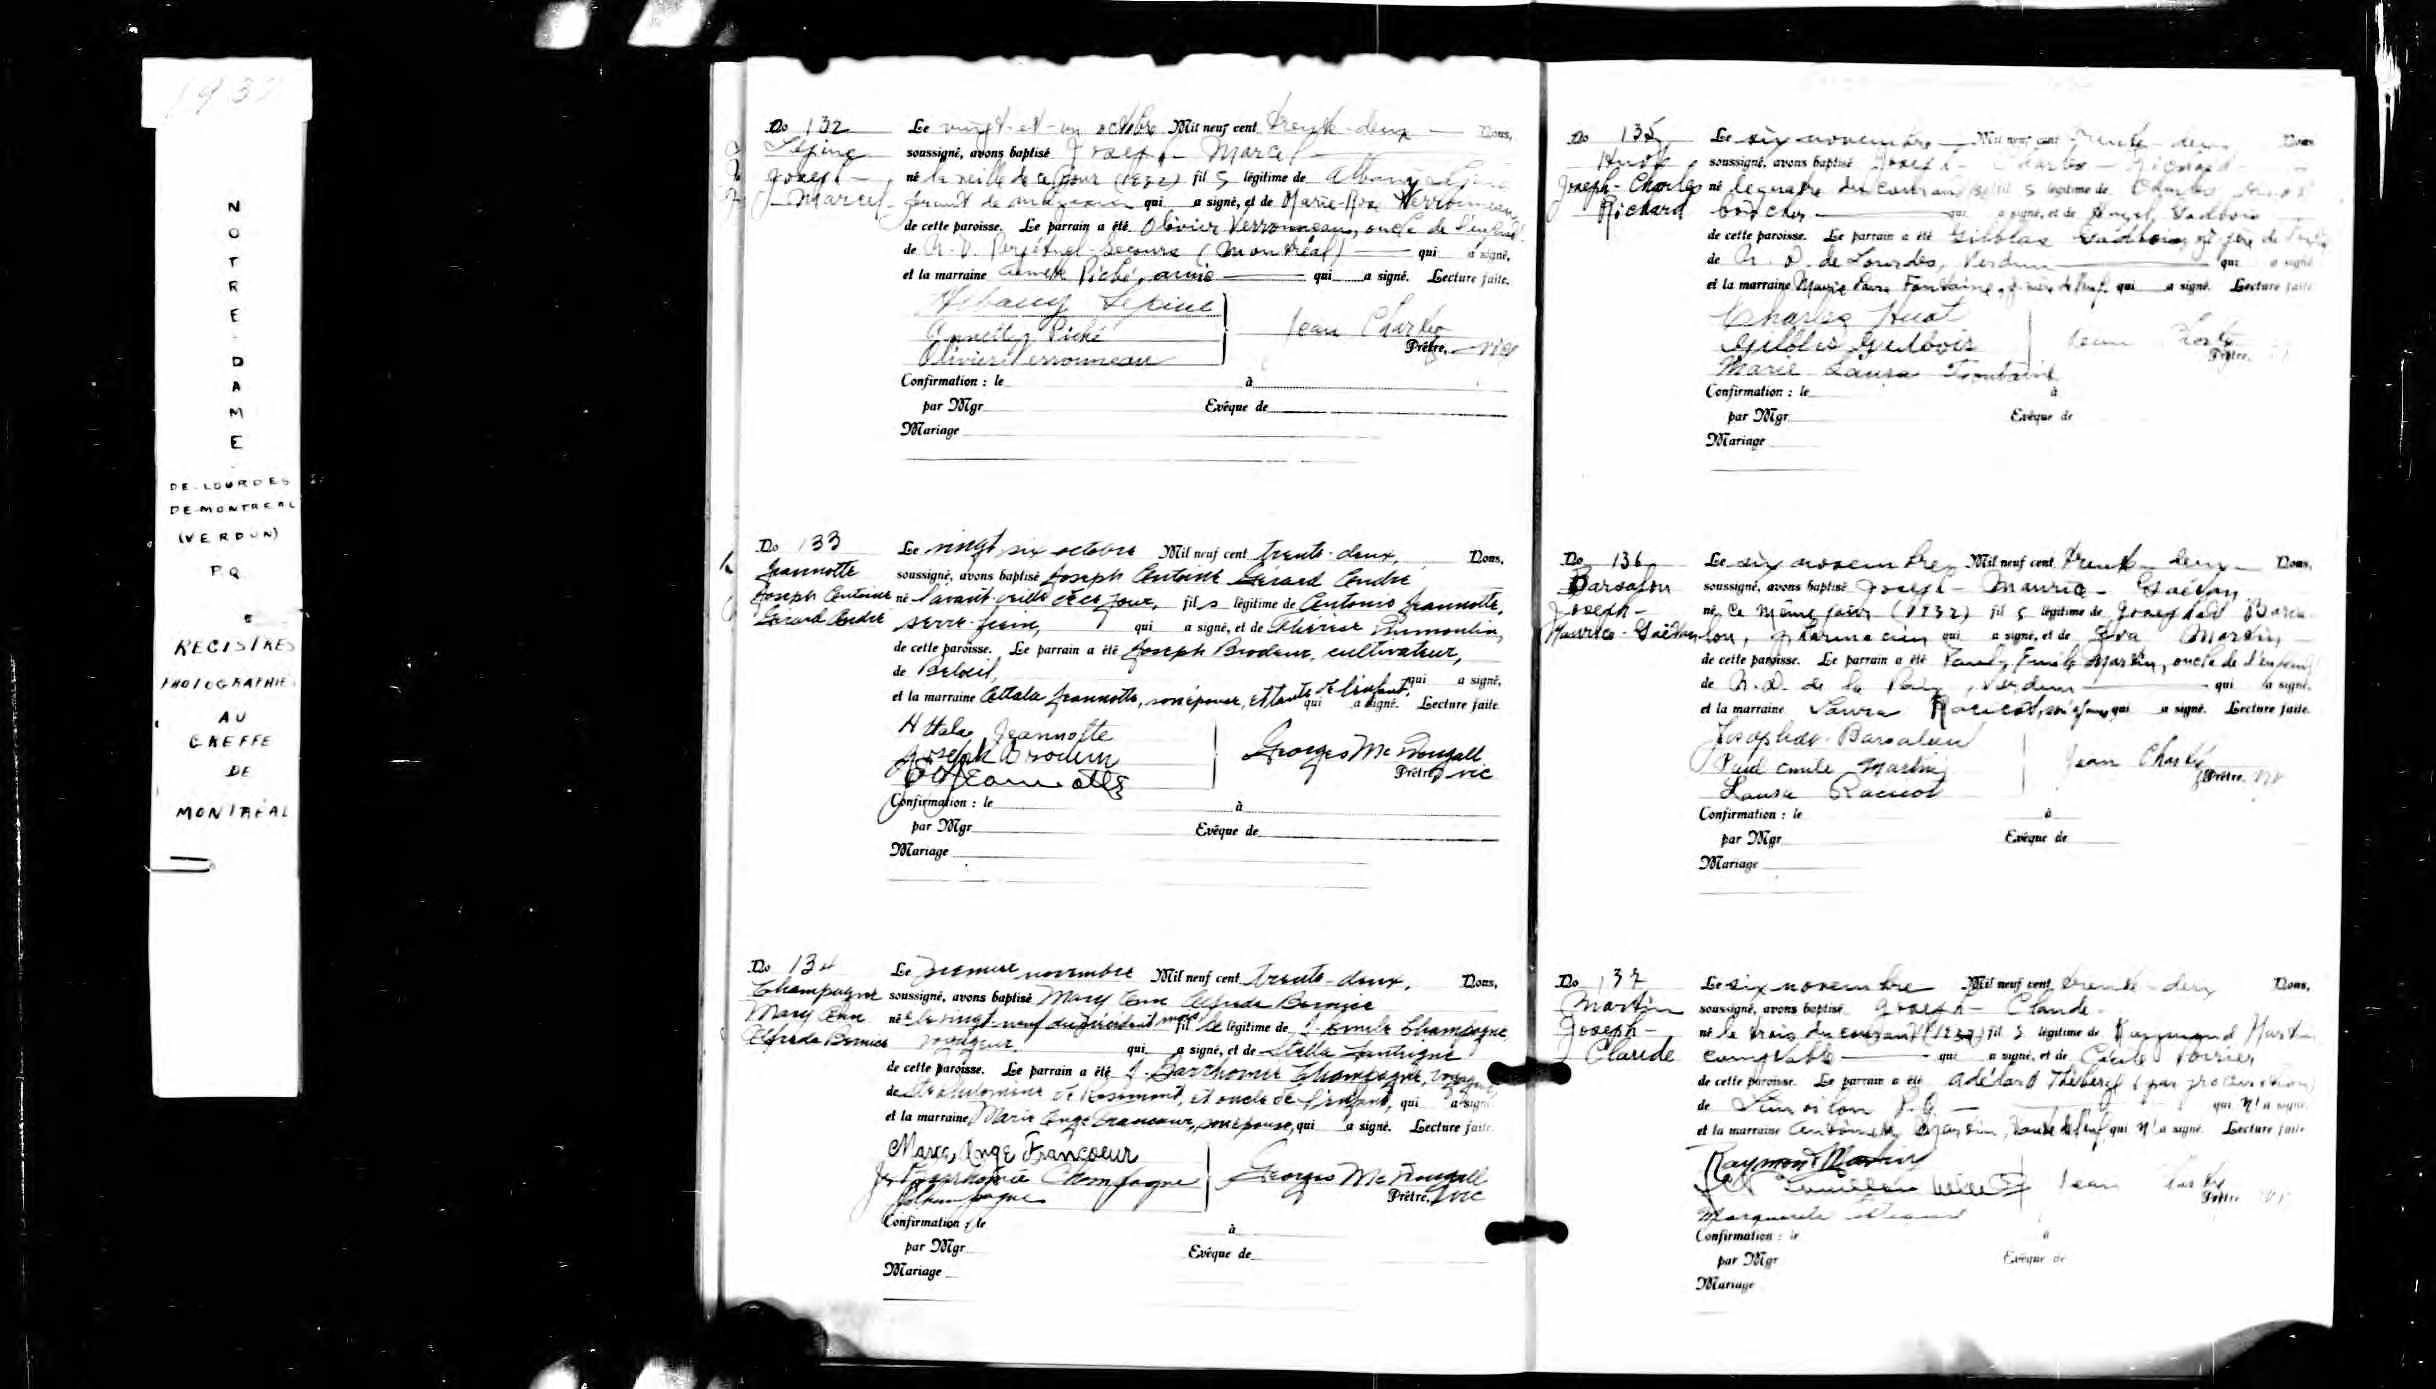 1932
NOTRE DAME
DE-LOURDES
DE-MONTREAL
(VERDUN)
P.Q.
REGISTRES
PHOTOGRAPHIÉS
AU
GREFFE
DE
MONTRÉAL
No 132
Lépine
Joseph-
Marcel
Le vingt-et-un octobre Mil neuf cent trente-deux Nous,
soussigné, avons baptisé Joseph - Marcel
né la veille de ce jour (1932) fils légitime de Albany Lépine
gérant de magasin qui a signé, et de Marie-Rose Verronneau
de cette paroisse. Le parrain a été Olivier Verronneau, oncle de l'enfant
de N. D. Perpétuel-Secours (Montréal) qui a signé,
et la marraine Annette Piché, amie qui a signé. Lecture faite.
Albany Lépine
Annette Piché
Olivier Verronneau
Jean
Prêtre, vic
Confirmation : le à
par Mgr Evêque de
Mariage
No 133
Jeannotte
Joseph Antoine
Gérard André
Le vingt six octobre Mil neuf cent trente-deux, Nous,
soussigné, avons baptisé Joseph Antoine Gérard André
né l'avant-veille de ce jour, fils légitime de Antonio Jeannotte,
serre-frein, qui a signé, et de Thérèse Dumoulin,
de cette paroisse. Le parrain a été Joseph Brodeur, cultivateur,
de Beloeil, qui a signé,
et la marraine Attala Jeannotte, son épouse, et tante de l'enfant, qui a signé. Lecture faite.
Attala Jeannotte
Joseph Brodeur
Jeannotte
Georges McDougall
Prêtre, vic
Confirmation : le à
par Mgr Evêque de
Mariage
No 134
Champagne
Mary Ann
Alfreda Bernice
Le premier novembre Mil neuf cent trente-deux, Nous,
soussigné, avons baptisé Mary Ann Alfreda Bernice
née le vingt-neuf du précédent mois fille légitime de J. Emile Champagne
voyageur, qui a signé, et de Stella
de cette paroisse. Le parrain a été J. Champagne,
de Ste Philomène de Rosemont, et oncle de l'enfant, qui a signé
et la marraine Marie Ange Francoeur, son épouse, qui a signé. Lecture faite.
Marie Ange Francoeur
Champagne
Champagne
Georges McDougall
Prêtre, vic
Confirmation : le à
par Mgr Evêque de
Mariage
No 135
Huot
Joseph-Charles
Richard
Le six novembre Mil neuf cent trente-deux Nous
soussigné, avons baptisé Joseph - Charles - Richard
né le quatre du courant fils légitime de Charles Huot
boucher qui a signé, et de Gadbois
de cette paroisse. Le parrain a été Gilblas Gadbois, gd père de
de N. D. de Lourdes, Verdun qui a signé
et la marraine Marie Laura Fontaine, qui a signé. Lecture faite
Charles Huot
Gilblas Gadbois
Marie Laura Fontaine
Jean
Prêtre,
Confirmation : le à
par Mgr Evêque de
Mariage
No 136
Barsalou
Joseph-
Maurice-Gaétan
Le six novembre Mil neuf cent trente-deux Nous,
soussigné, avons baptisé Joseph - Maurice - Gaétan
né ce même jour (1932) fils légitime de Josaphat Barsa-
lou, pharmacien qui a signé, et de Eva Martin,
de cette paroisse. Le parrain a été Paul-Emile Martin, oncle de l'enfant
de N. D. de la Paix, Verdun qui a signé,
et la marraine Laura Racicot, son épouse, qui a signé. Lecture faite.
Josaphat Barsalou
Paul Emile Martin
Laura Racicot
Jean
Prêtre,
Confirmation : le à
par Mgr Evêque de
Mariage
No 137
Martin
Joseph-
Claude
Le six novembre Mil neuf cent trente-deux Nous,
soussigné, avons baptisé Joseph - Claude
né le trois du courant (1932) fils légitime de Raymond Martin
comptable qui a signé, et de Cécile Poirier
de cette paroisse. Le parrain a été Adélard (par procuration)
de P.Q. qui n'a signé.
et la marraine qui n'a signé. Lecture faite
Raymond Martin
Marguerite
Jean
Prêtre
Confirmation : le à
par Mgr Evêque de
Mariage